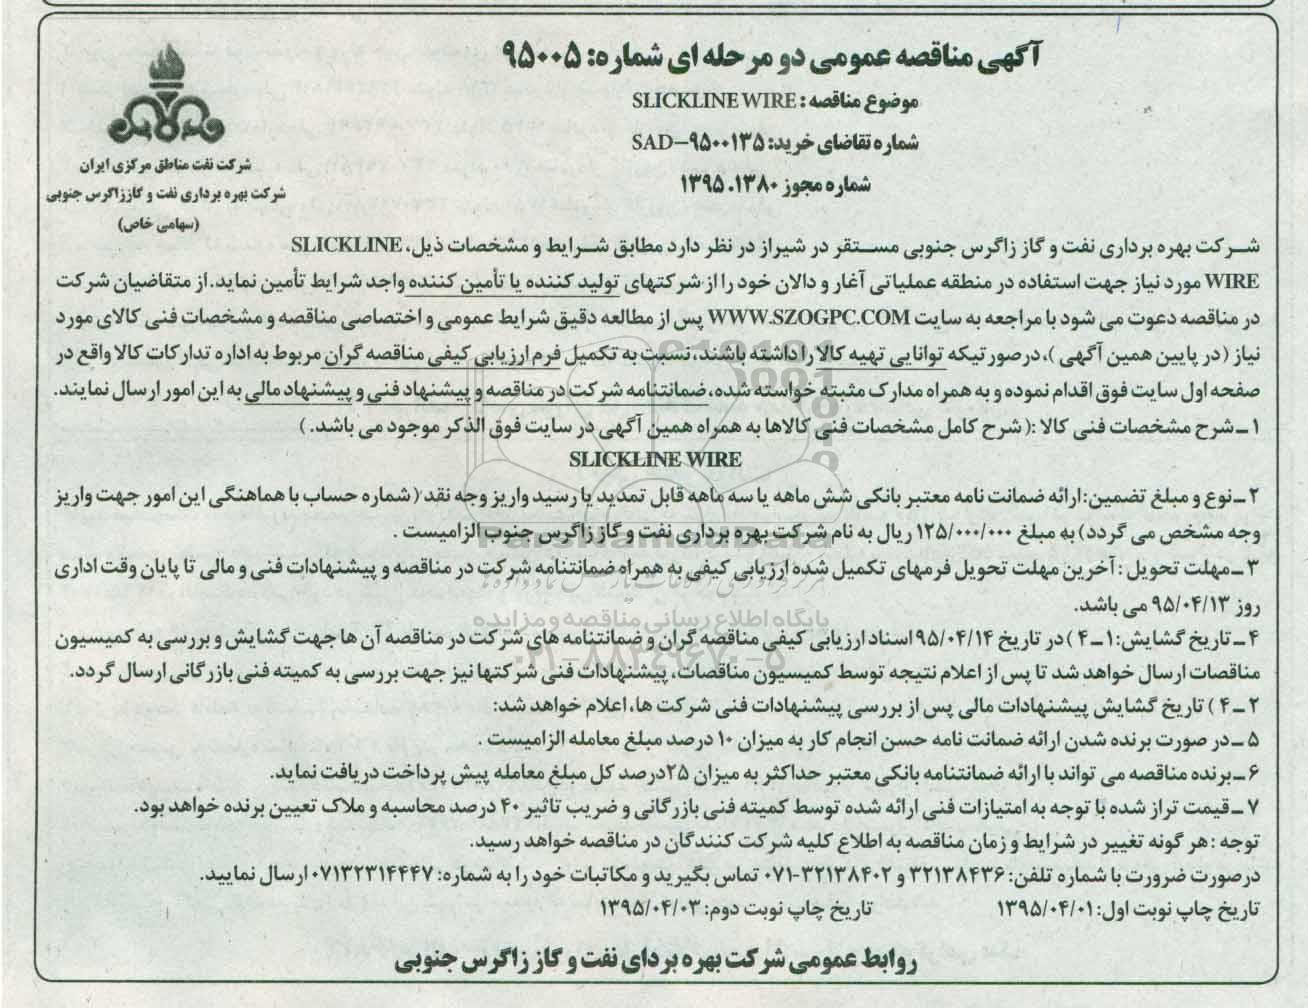 آگهی مناقصه عمومی دو مرحله ای شماره: ۹۵۰۰۵
موضوع مناقصه: SLICKLINE WIRE
شماره تقاضای خرید: SAD-۹۵۰۰۱۳۵
شماره مجوز ۱۳۹۵.۱۳۸۰
شرکت نفت مناطق مرکزی ایران
شرکت بهره برداری نفت و گاز زاگرس جنوبی
(سهامی خاص)
شـرکت بهره برداری نفت و گاز زاگرس جنوبی مسـتقر در شیراز در نظر دارد مطابق شـرایط و مشخصات ذیل، SLICKLINE
WIRE مورد نیاز جهت استفاده در منطقه عملیاتی آغار و دالان خود را از شرکتهای تولید کننده یا تأمین کننده واجد شرایط تأمین نماید.از متقاضیان شرکت
در مناقصه دعوت می شود با مراجعه به سایت WWW.SZOGPC.COM پس از مطالعه دقیق شرایط عمومی و اختصاصی مناقصه و مشخصات فنی کالای مورد
نیاز (در پایین همین آگهی )،درصورتیکه توانایی تهیه کالا را داشته باشند، نسبت به تکمیل فرم ارزیابی کیفی مناقصه گران مربوط به اداره تدارکات کالا واقع در
صفحه اول سایت فوق اقدام نموده و به همراه مدارک مثبته خواسته شده، ضمانتنامه شرکت در مناقصه و پیشنهاد فنی و پیشنهاد مالی به این امور ارسال نمایند.
۱ـ شرح مشخصات فنی کالا :( شرح کامل مشخصات فنی کالاها به همراه همین آگهی در سایت فوق الذکر موجود می باشد. )
SLICKLINE WIRE
۲ـ نوع و مبلغ تضمین:ارائه ضمانت نامه معتبر بانکی شش ماهه یا سه ماهه قابل تمدید یا رسید واریز وجه نقد ( شماره حساب با هماهنگی این امور جهت واریز
وجه مشخص می گردد) به مبلغ ۱۲۵/۰۰۰/۰۰۰ ریال به نام شرکت بهره برداری نفت و گاز زاگرس جنوب الزامیست .
۳ـ مهلت تحویل : آخرین مهلت تحویل فرمهای تکمیل شده ارزیابی کیفی به همراه ضمانتنامه شرکت در مناقصه و پیشنهادات فنی و مالی تا پایان وقت اداری
روز ۹۵/۰۴/۱۳ می باشد.
۴ـ تاریخ گشایش:۱ـ۴ ) در تاریخ ۹۵/۰۴/۱۴ اسناد ارزیابی کیفی مناقصه گران و ضمانتنامه های شرکت در مناقصه آن ها جهت گشایش و بررسی به کمیسیون
مناقصات ارسال خواهد شد تا پس از اعلام نتیجه توسط کمیسیون مناقصات، پیشنهادات فنی شرکتها نیز جهت بررسی به کمیته فنی بازرگانی ارسال گردد.
۲ـ۴ ) تاریخ گشایش پیشنهادات مالی پس از بررسی پیشنهادات فنی شرکت ها، اعلام خواهد شد:
۵ـ در صورت برنده شدن ارائه ضمانت نامه حسن انجام کار به میزان ۱۰ درصد مبلغ معامله الزامیست .
۶ـ برنده مناقصه می تواند با ارائه ضمانتنامه بانکی معتبر حداکثر به میزان ۲۵درصد کل مبلغ معامله پیش پرداخت دریافت نماید.
۷ـ قیمت تراز شده با توجه به امتیازات فنی ارائه شده توسط کمیته فنی بازرگانی و ضریب تاثیر ۴۰ درصد محاسبه و ملاک تعیین برنده خواهد بود.
توجه : هر گونه تغییر در شرایط و زمان مناقصه به اطلاع کلیه شرکت کنندگان در مناقصه خواهد رسید.
درصورت ضرورت با شماره تلفن: ۳۲۱۳۸۴۳۶ و ۳۲۱۳۸۴۰۲-۰۷۱ تماس بگیرید و مکاتبات خود را به شماره: ۰۷۱۳۲۳۱۴۴۴۷ ارسال نمایید.
تاریخ چاپ نوبت اول: ۱۳۹۵/۰۴/۰۱ تاریخ چاپ نوبت دوم: ۱۳۹۵/۰۴/۰۳
روابط عمومی شرکت بهره بردای نفت و گاز زاگرس جنوبی
ParsNamadData
پایگاه اطلاع رسانی مناقصه و مزایده
۰۲۱-۸۸۳۴۹۶۷۰-۵